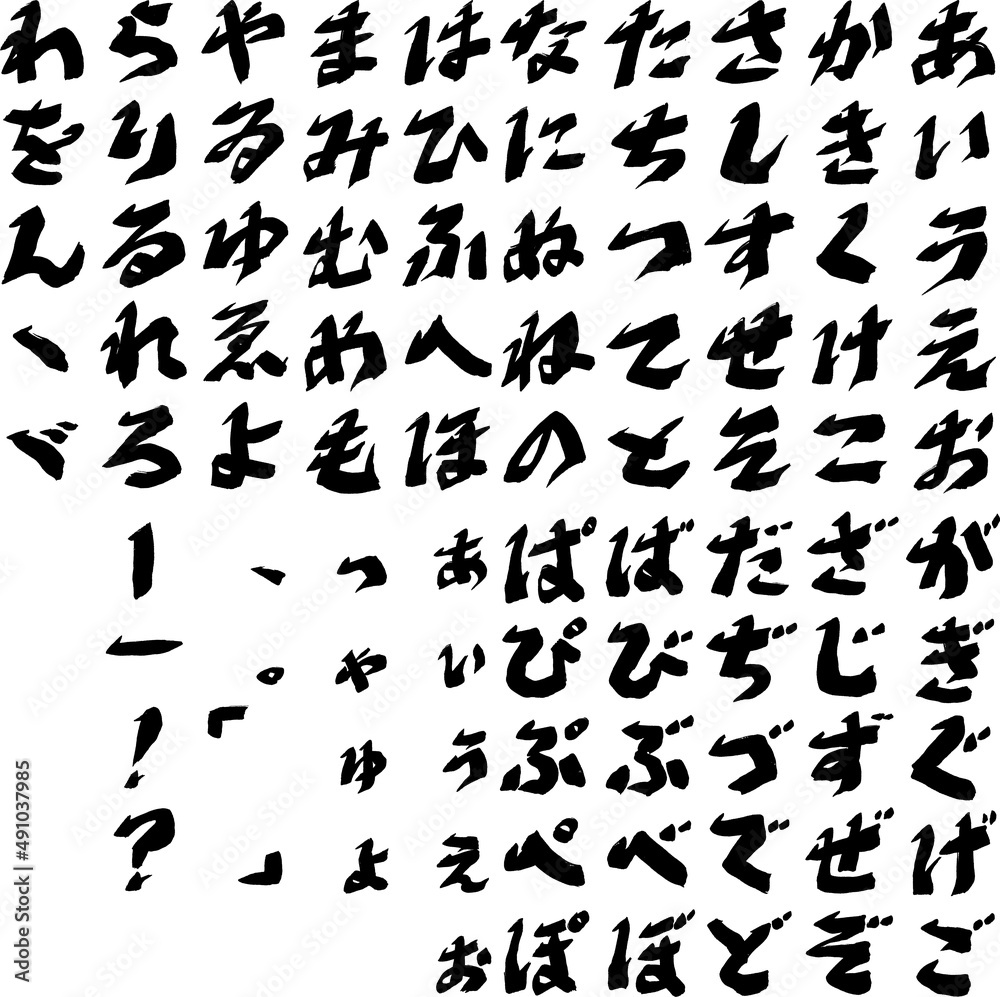 あいうえお
かきくけこ
さしすせそ
たちつてと
なにぬねの
はひふへほ
まみむめも
やゐゆゑよ
らりるれろ
わをんゝゞ
がぎぐげご
ざじずぜぞ
だぢづでど
ばびぶべぼ
ぱぴぷぺぽ
ぁぃぅぇぉ
っゃゅょ
、。「」
｜ー！？
Adobe Stock | #491037985